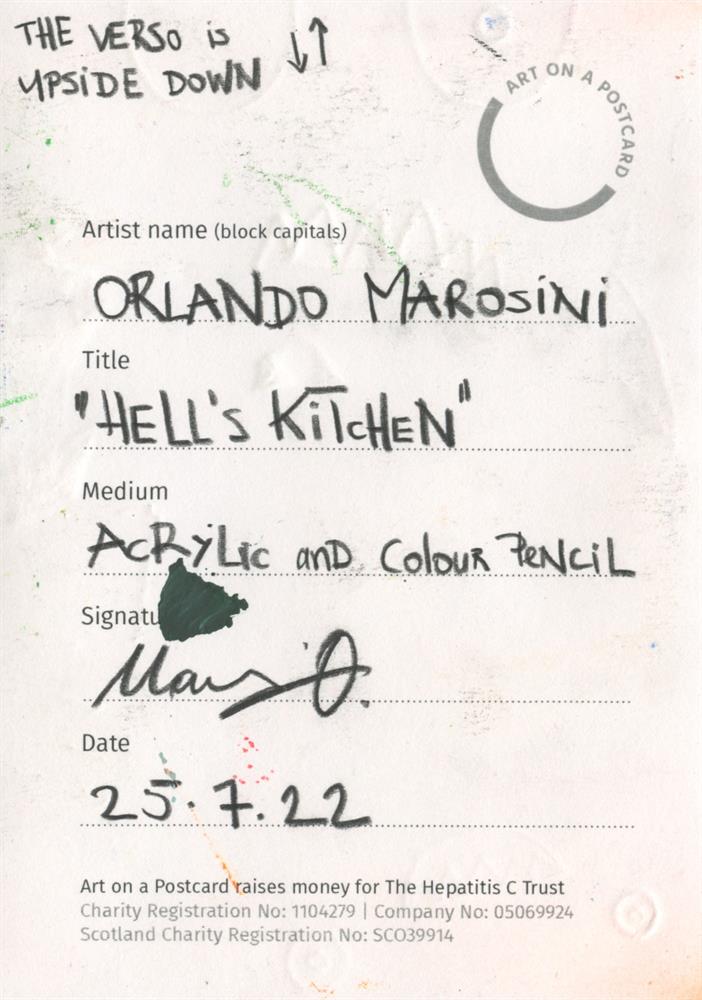 THE VERSO iS
UPSiDE DOWN ↓↑
ART ON A POSTCARD
Artist name (block capitals)
ORLANDO MAROSiNi
Title
"HELL'S KiTCHEN"
Medium
ACRYLIC anD COLOUR PENCiL
Signatu
Date
25.7.22
Art on a Postcard raises money for The Hepatitis C Trust
Charity Registration No: 1104279 | Company No: 05069924
Scotland Charity Registration No: SCO39914